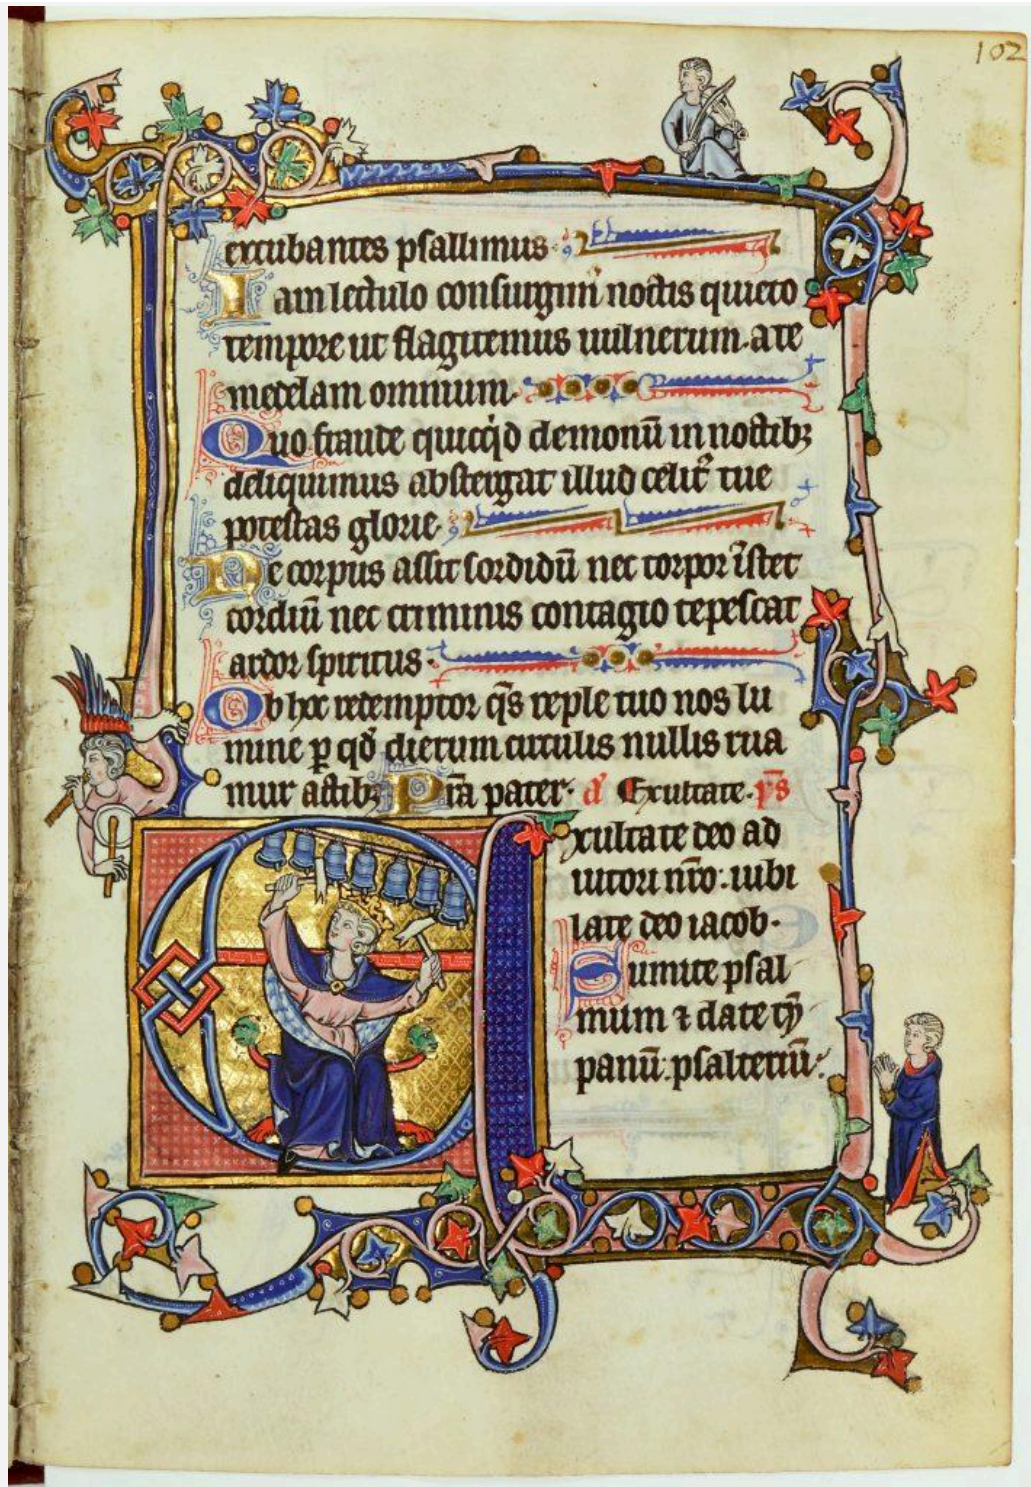 102
excubantes psallimus
Iam lectulo consurgim᷒ noctis quieto
tempore ut flagitemus uulnerum a te
medelam omnium.
Quo fraude quicq̇d demonū in noctibꝫ
deliquimus abstergat illud celit᷒ tue
potestas glorie.
Ne corpus assit sordidū nec torpor īstet
cordiū nec criminis contagio tepescat
ardor spiritus.
Ob hoc redemptor q̄s reple tuo nos lu
mine ꝑ qd̄ dierum circulis nullis rua
mur actibꝫ Pr̄a pater. a᷒ Exultate. p̄s
Exultate deo ad
iutori nr̄o: iubi
late deo iacob.
Sumite psal
mum ⁊ date tȳ
panū: psalteriū